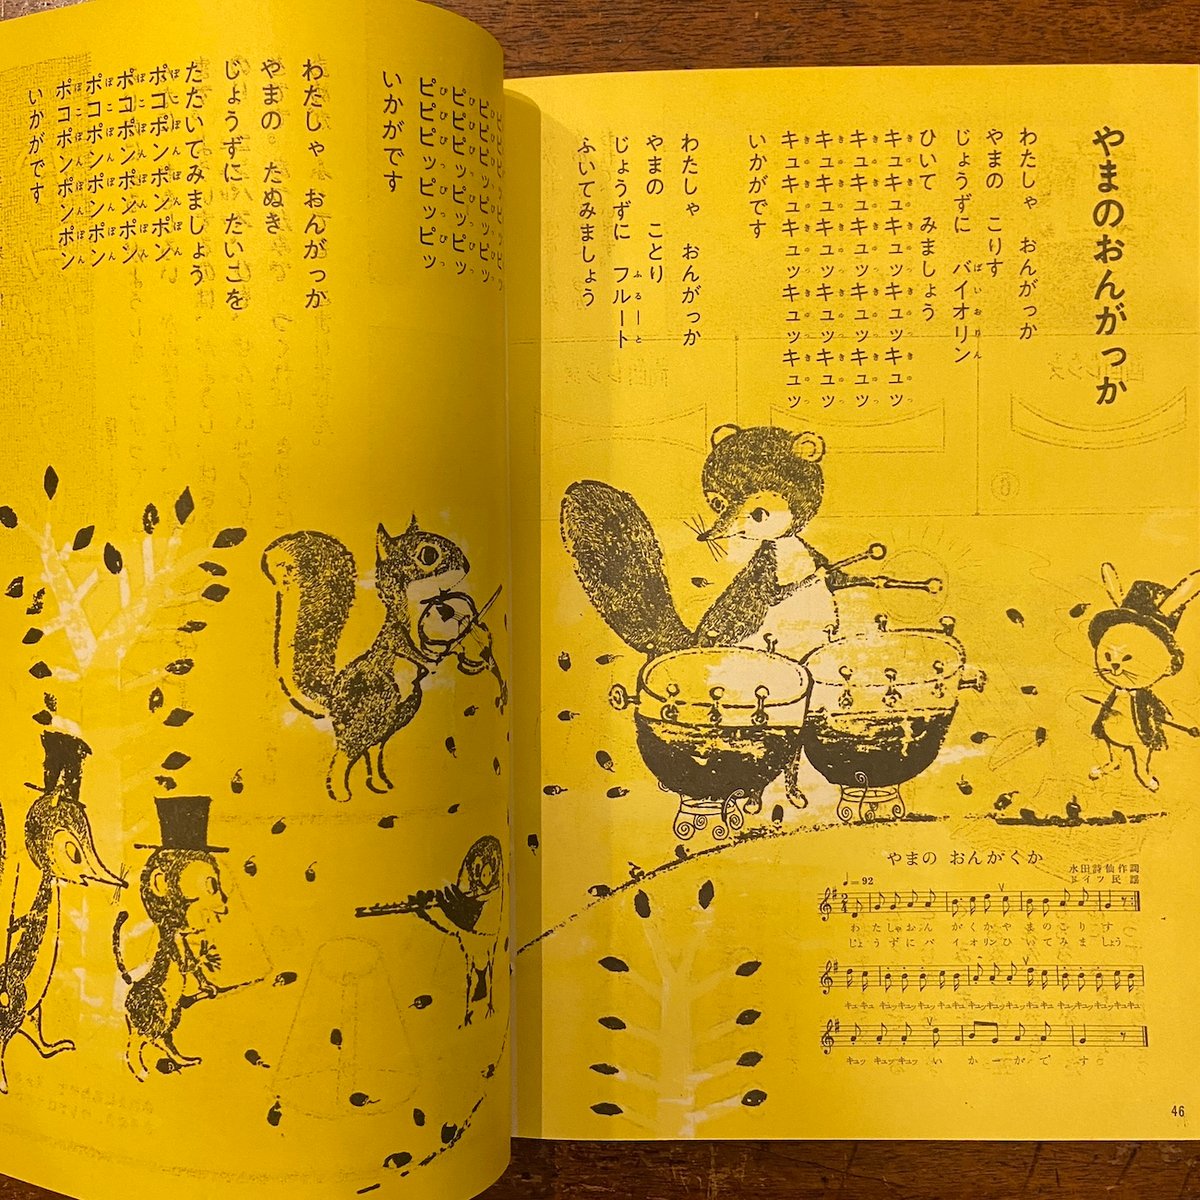 やまのおんがっか
わたしゃ おんがっか
やまの こりす
じょうずに バイオリン
ばいおりん
ひいて みましょう
キュキュキュッキュッキュッ
キュキュキュッキュッキュッ
キュキュキュッキュッキュッ
キュキュキュッキュッキュッ
いかがです
わたしゃ おんがっか
やまの ことり
じょうずに フルート
ふるーと
ふいてみましょう
ピピピッピッピッ
ピピピッピッピッ
ピピピッピッピッ
いかがです
わたしゃ おんがっか
やまの たぬき
じょうずに たいこを
たたいてみましょう
ポコポンポンポン
ぽこぽんぽんぽん
ポコポンポンポン
ぽこぽんぽんぽん
ポコポンポンポン
ぽこぽんぽんぽん
ポコポンポンポン
ぽこぽんぽんぽん
いかがです
やまの おんがくか
水田詩仙作詞
ドイツ民謡
♩=92
わ たしゃおん がくかや まのこり す
じょうずにバ イオリンひ いてみま しょう
キュキュ キュッキュッ キュッキュッキュキュ キュッキュッキュッキュキュ
キュッ キュッキュッ い か ー が で す
46